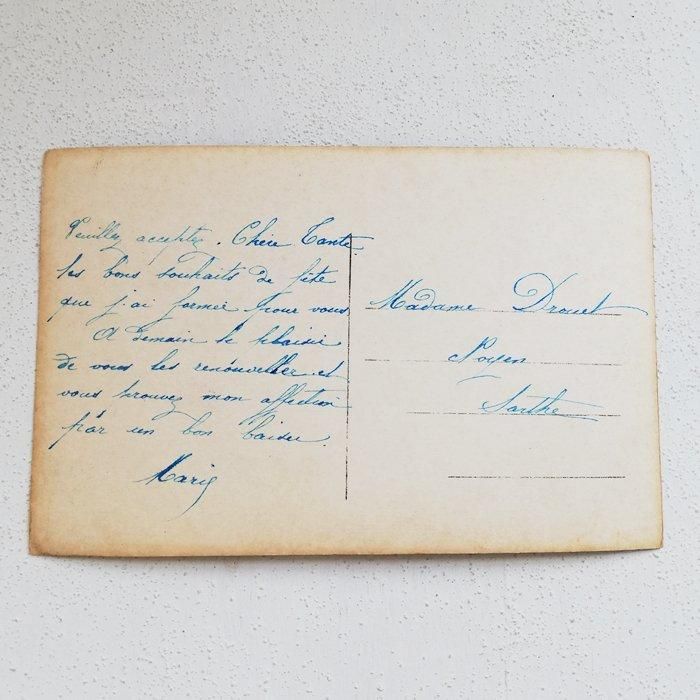 Veuillez acceptez. Chère Tante
les bons souhaits de fête
que j'ai formé pour vous
A demain le plaisir
de vous les renouveller et
vous prouvez mon affection
par un bon baiser.
Marie
Madame Drouet
Noyen
Sarthe